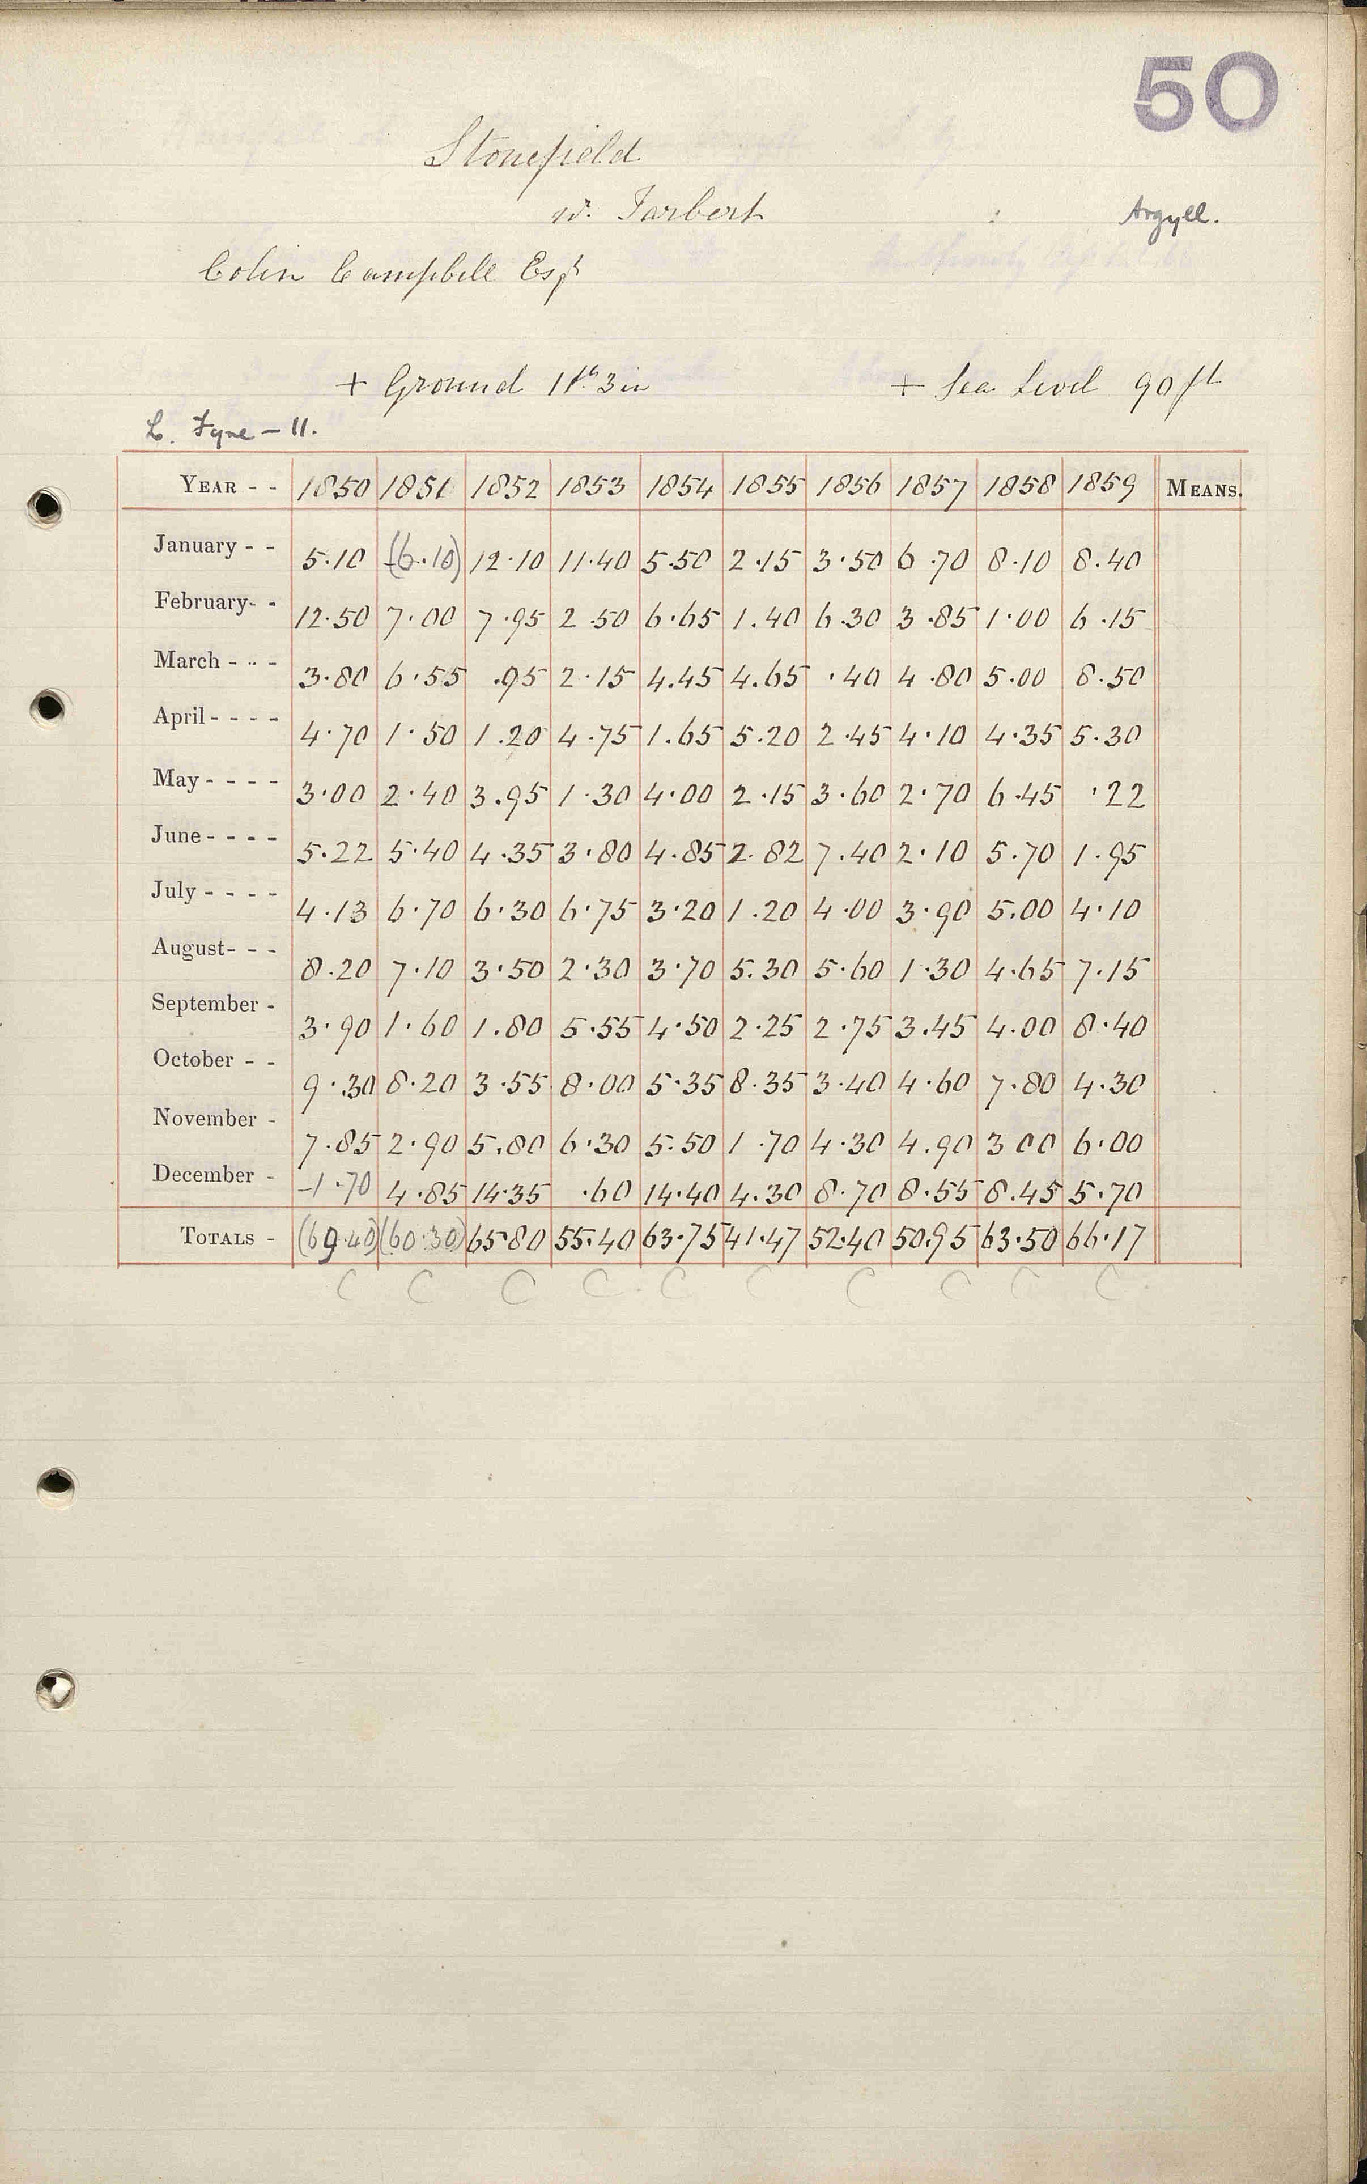 50
Stonefield
nr. Tarbert
Argyll.
Colin Campbell Esqr
+ Ground 1ft 3in + Sea Level 90ft
L. Fyne - 11.
YEAR - - 1850 1851 1852 1853 1854 1855 1856 1857 1858 1859 MEANS.
January - - 5.10 (6.10) 12.10 11.40 5.50 2.15 3.50 6.70 8.10 8.40
February- - 12.50 7.00 7.95 2.50 6.65 1.40 6.30 3.85 1.00 6.15
March - - - 3.80 6.55 .95 2.15 4.45 4.65 .40 4.80 5.00 8.50
April - - - - 4.70 1.50 1.20 4.75 1.65 5.20 2.45 4.10 4.35 5.30
May - - - - 3.00 2.40 3.95 1.30 4.00 2.15 3.60 2.70 6.45 .22
June - - - - 5.22 5.40 4.35 3.80 4.85 2.82 7.40 2.10 5.70 1.95
July - - - - 4.13 6.70 6.30 6.75 3.20 1.20 4.00 3.90 5.00 4.10
August- - - 8.20 7.10 3.50 2.30 3.70 5.30 5.60 1.30 4.65 7.15
September - 3.90 1.60 1.80 5.55 4.50 2.25 2.75 3.45 4.00 8.40
October - - 9.30 8.20 3.55 8.00 5.35 8.35 3.40 4.60 7.80 4.30
November - 7.85 2.90 5.80 6.30 5.50 1.70 4.30 4.90 3 00 6.00
December - -1.70 4.85 14.35 .60 14.40 4.30 8.70 8.55 8.45 5.70
TOTALS - (69.40) (60.30) 65.80 55.40 63.75 41.47 52.40 50.95 63.50 66.17
C C C C C C C C C C